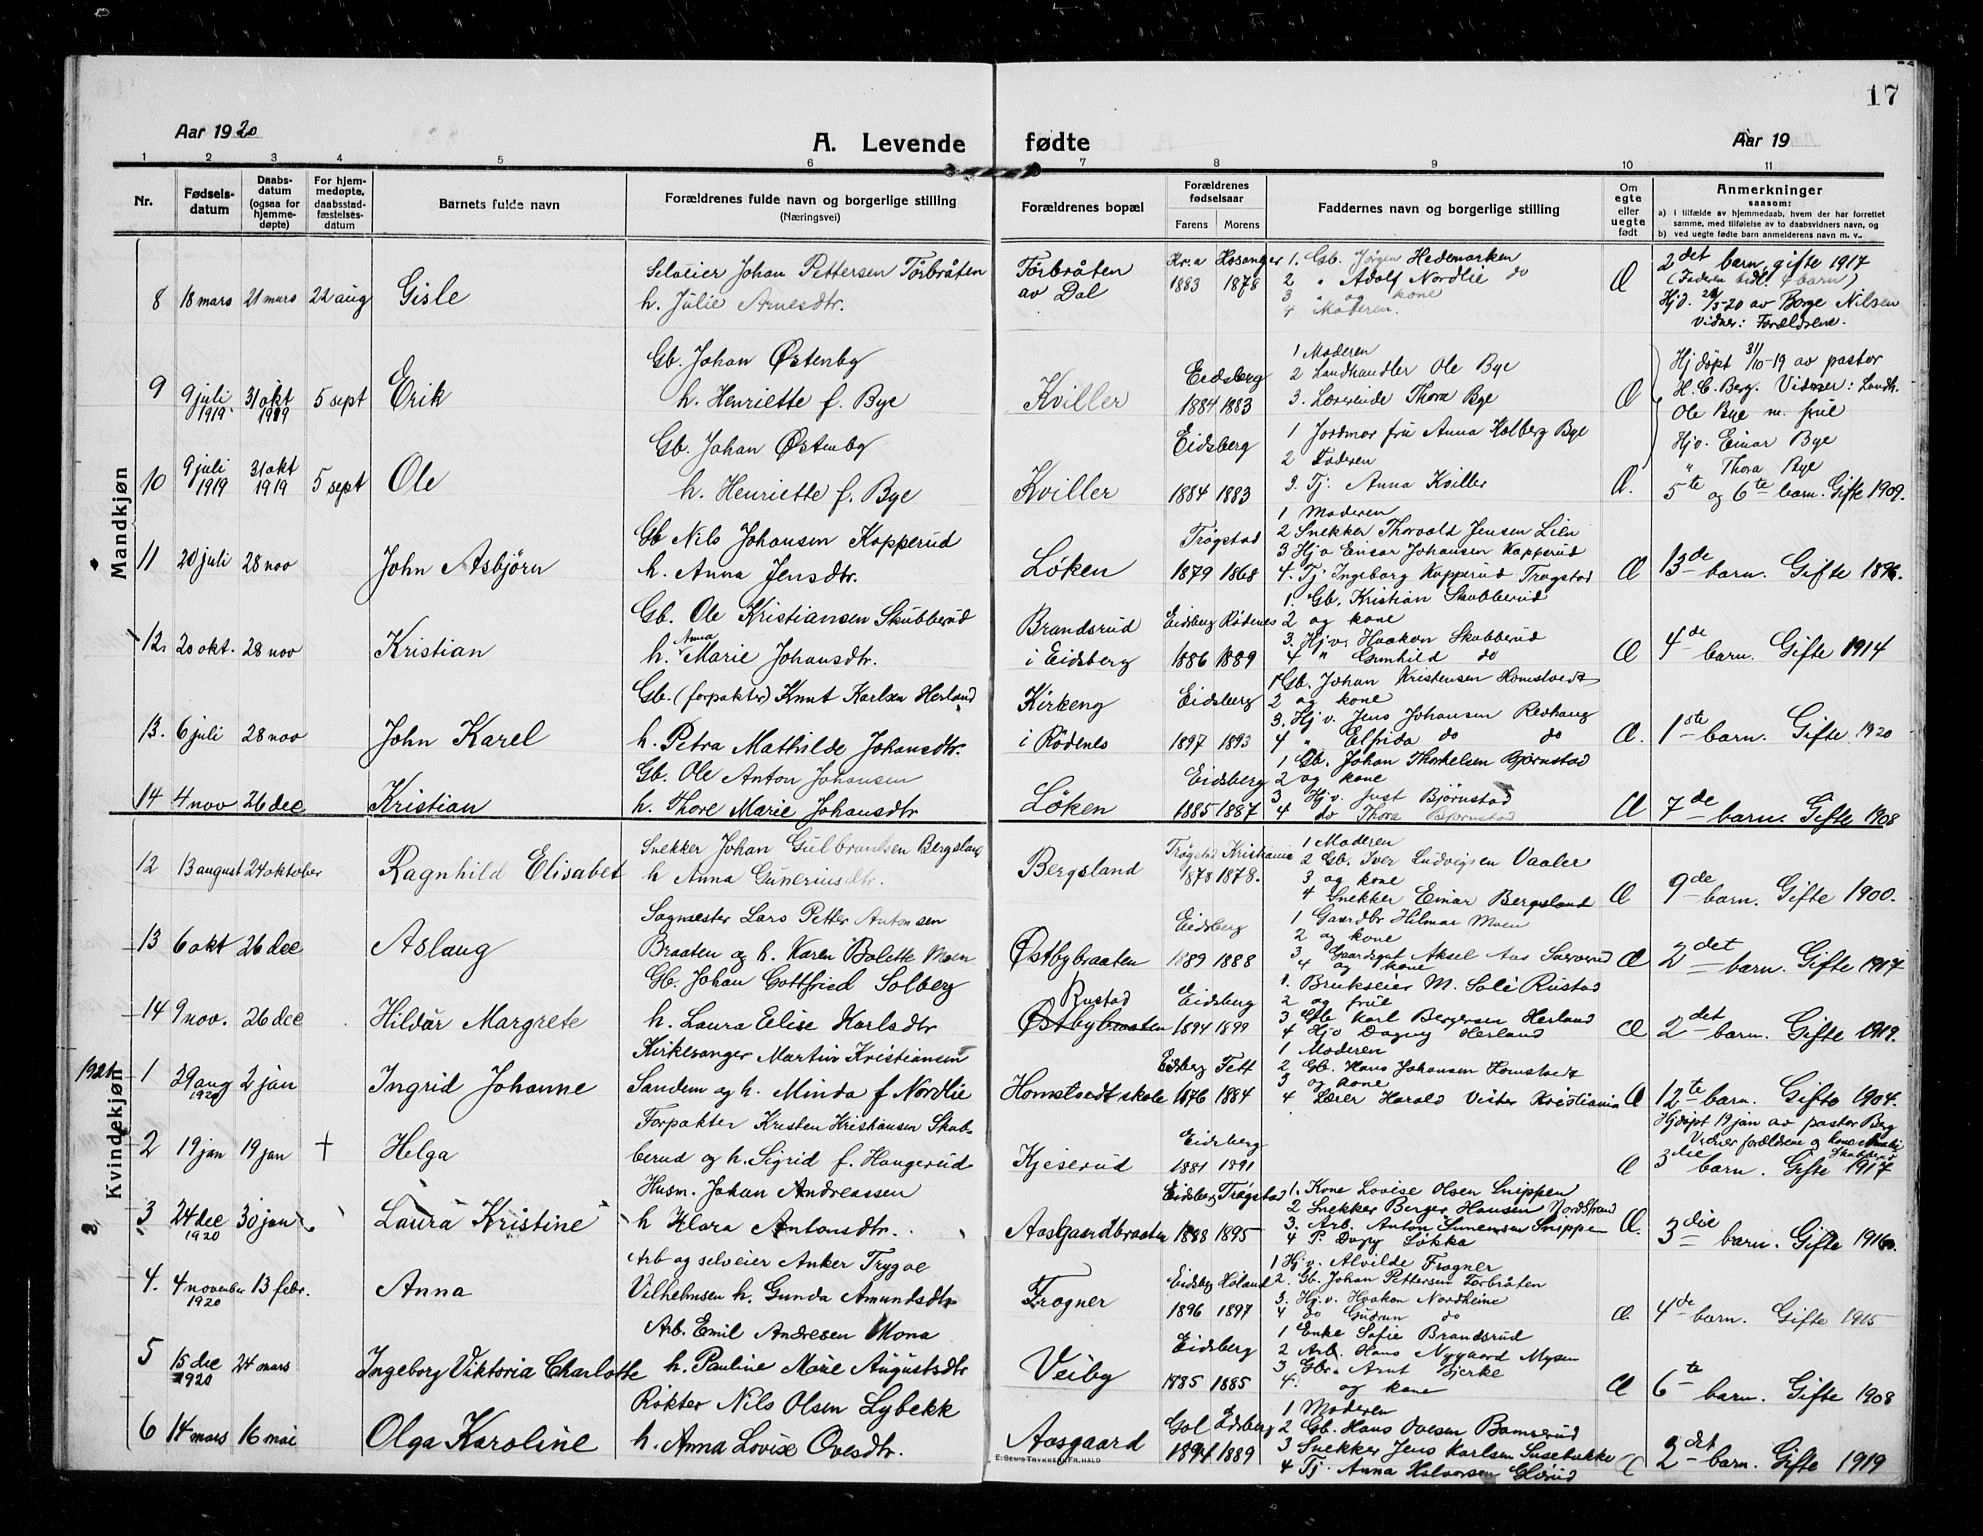 17
Aar 1920
A. Levende fødte
Aar 19
1 2 3 4 5 6 7 8 9 10 11
Nr.
Fødsels-
datum
Daabs-
datum
(ogsaa for
hjemme-
døpte)
For hjem-
medøpte,
daabsstad-
fæstelses-
datum
Barnets fulde navn
Forældrenes fulde navn og borgerlige stilling
(Næringsvei)
Forældrenes bopæl
Forældrenes
fødselsaar
Farens Morens
Faddernes navn og borgerlige stilling
Om
egte
eller
uegte
født
Anmerkninger
saasom:
a) I tilfælde av hjemmedaab, hvem der har forrettet
samme, med tilføielse av to daabsvidners navn, og
b) ved uegte fødte barn anmelderens navn m. v.
Mandkjøn
8 18 mars 21 mars 22 aug Gisle
Selveier Johan Pettersen Torbråten
h. Julie Arnesdtr.
Torbråten
av Dal
Kr.a Høsanger
1883 1878
1. Gb. Jørgen Hedemarken
2 " Adolf Nordlie do
3 " og kone
4 Moderen.
Æ
2det barn, gifte 1917
(Faderen tidl. barn)
Hjd. 21/3-20 av Borge Nilsen
Vidner: Forældrene.
9 9 juli 1919 31 okt 1919 5 sept Erik
Gb. Johan Østenby
h. Henriette f. Bye
Kviller
Eidsberg
1884 1883
1 Moderen
2 Landhandler Ole Bye
3. Lærerinde Thora Bye
Æ
Hjdøpt 31/10-19 av pastor
H. C. Berg. Vidner: Landh.
Ole Bye m. frue
10 9 juli 1919 31 okt 1919 5 sept Ole
Gb. Johan Østenby
h. Henriette f. Bye
Kviller
Eidsberg
1884 1883
1 Jordmor fru Anna Kolberg Bye
2 Faderen
3. Tj. Anna Kviller
Æ.
Hjv. Einar Bye
" Thora Bye
5te og 6te barn. Gifte 1909.
11 20 juli 28 nov John Asbjørn
Gb Nils Johansen Kopperud
h. Anna Jensdtr.
Løken
Trøgstad
1879 1868
1 Moderen
2 Snekker Thorvald Jensen Lien
3 Hjv Einar Johansen Kopperud
4. Tj Ingeborg Kopperud Trøgstad
Æ
13de barn. Gifte 1896.
12. 20 okt. 28 nov Kristian
Gb. Ole Kristiansen Skubberud
h. Anna Marie Johansdtr.
Brandsrud
i Eidsberg
Eidsberg Rødenes
1886 1889
1. Gb. Kristian Skubberud
2 og kone
3. Hjv. Haakon Skubberud
4 " Gunhild do
Æ
4de barn. Gifte 1914
13. 6 juli 28 nov John Karel
Gb. (forpakter) Knut Karlsen Herland
h. Petra Mathilde Johansdtr.
Kirkeng
i Rødenes
Eidsberg
1897 1893
1 Gb. Johan Kristensen Homstvedt
2 og kone
3. Hjv. Jens Johansen Redhaug
4 " Elfrida do do
Æ.
1ste barn. Gifte 1920
14 4 nov 26 dec Kristian
Gb. Ole Anton Johansen
h. Thore Marie Johansdtr
Løken
Eidsberg
1885 1887
1 Gb. Johan Thorkelsen Bjørnstad
2 og kone
3 Hjv. Just Bjørnstad
4 do Thora Bjørnstad
Æ
7de barn. Gifte 1908
Kvindekjøn
12 13 august 24 oktober Ragnhild Elisabet
Snekker Johan Gulbrandsen Bergsland
h Anna Guneriusdtr.
Bergsland
Trøgstad Kristiania
1878 1878.
1 Moderen
2 Gb. Iver Ludvigsen Vaaler
3 og kone
4 Snekker Einar Bergsland
Æ
9de barn. Gifte 1900.
13 6 okt 26 dec Aslaug
Sagmester Lars Petter Antonsen
Braaten og h. Karen Bolette Moen
Østbybraaten
Eidsberg
1889 1888
1 Gaardbr Hilmar Moen
2 og kone
3 Gaardsgut Aksel Aas
4 og kone
Æ
2det barn. Gifte 1917
14 9 nov. 26 dec Hildur Margrete
Gb. Johan Gottfried Solberg
h. Laura Elise Karlsdtr
Rustad
Østbybraaten
Eidsberg
1894 1899
1. Brukseier M. Soli Rustad
2 og frue
3 Gb Karl Bergersen Herland
4 Hjv Dagny Herland
Æ
2det barn. Gifte 1919.
1921
1 29 aug 1920 2 jan Ingrid Johanne
Kirkesanger Martin Kristiansen
Sandem og h. Minda f Nordlie
Homstvedt skole
Eidsberg Tett
1876 1884
1 Moderen
2 Gb. Hans Johansen Homstvedt
3 og kone
4 Lærer Harald Vister Kristiania
Æ
12te barn. Gifte 1904.
2 19 jan 19 jan † Helga
Forpakter Kristen Kristiansen Skub-
berud og h. Sigrid f. Haugerud
Kjeserud
Eidsberg
1881 1891
Æ
Hjdøpt 19 jan av pastor Berg
Vidner forældrene og
Skubberud
3die barn. Gifte 1917
3 24 dec 1920 30 jan Laura Kristine
Husm. Johan Andreassen
h Klara Antonsdtr.
Aasgaardbraaten
Eidsberg Trøgstad
1888 1895
1. Kone Lovise Olsen Snippen
2 Snekker Berger Hansen Nordstrand
3. Arb. Anton Simensen Snippen
4 P. Dagny Løkka
Æ.
3die barn. Gifte 1916.
4. 4 november 1920 13 febr. Anna
Arb og selveier Anker Trygve
Vilhelmsen h. Gunda Amundsdtr
Frogner
Eidsberg Høland
1896 1897
1 Hjv. Alvilde Frogner
2. Gb. Johan Pettersen Torbråten
3. Hjv. Haakon Nordheine
4 do Gudrun do
Æ
4de barn. Gifte 1915
5 15 dec 1920 24 mars Ingeborg Viktoria Charlotte
Arb. Emil Andresen Mona
h. Pauline Marie Augustsdtr
Veiby
Eidsberg
1885 1885
1 Enke Sofie Brandsrud
2 Arb. Hans Nygaard Mysen
3 Gbr. Arnt Bjerke
4. og kone
Æ
6te barn. Gifte 1908
6 14 mars 16 mai Olga Karoline
Røkter Nils Olsen Lybekk
h. Anna Lovise Ovesdtr.
Aasgaard
Gol Edsberg
1894 1889
1 Moderen
2 Gb. Hans Ovesen Bamserud
3 Snekker Jens Karlsen Susebakke
4 Tj. Anna Halvorsen Glerud
Æ
2det barn. Gifte 1919
E. SEM'S TRYKKERI, FR.HALD